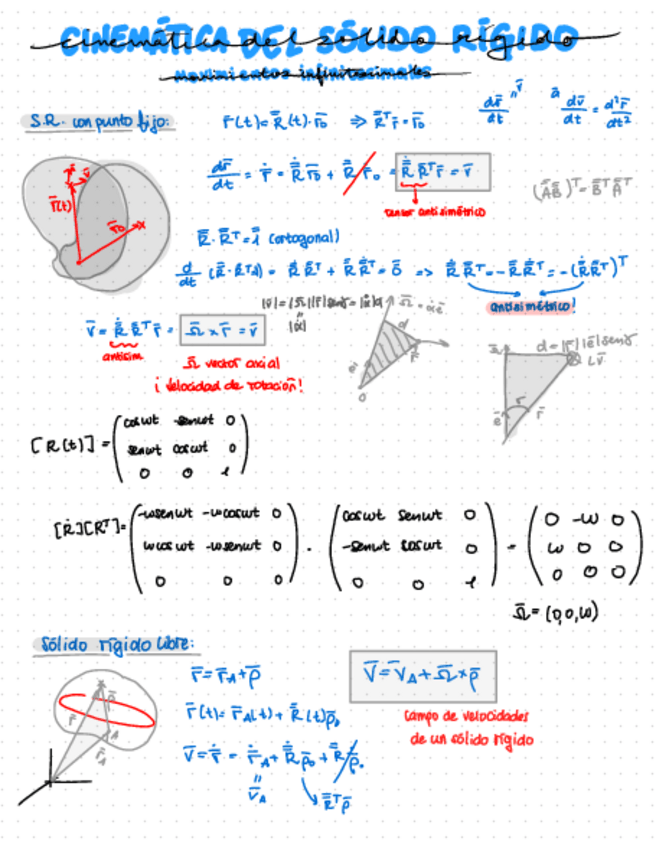 CINEMÁTICA DEL SÓLIDO RÍGIDO
movimientos infinitesimales
S.R. con punto fijo:
r̄(t) = R̿(t)·r̄₀ ⇒ R̿ᵀr̄ = r̄₀
dr̄/dt = v̄ ā = dv̄/dt = d²r̄/dt²
dr̄/dt = ṙ̄ = Ṙ̿ r̄₀ + R̿ ṙ̄₀ = Ṙ̿ R̿ᵀ r̄ = v̄
(A̿B̿)ᵀ = B̿ᵀA̿ᵀ
tensor antisimétrico
r̄(t) r̄₀ v̄
R̿·R̿ᵀ = 1̿ (ortogonal)
d/dt (R̿·R̿ᵀ) = Ṙ̿ R̿ᵀ + R̿ Ṙ̿ᵀ = 0̿ ⇒ Ṙ̿ R̿ᵀ = - R̿ Ṙ̿ᵀ = -(Ṙ̿R̿ᵀ)ᵀ
antisimétrico!
|v̄| = |Ω̄||r̄|senγ = |α̇|d
|α̇|
Ω̄ = α̇ē
v̄ = Ṙ̿ R̿ᵀ r̄ = Ω̄ × r̄ = v̄
antisim
Ω̄ vector axial
¡velocidad de rotación!
d = |r̄||ē|senγ
⊥v̄
[R(t)] = (cosωt -senωt 0
senωt cosωt 0
0 0 1)
[Ṙ][Rᵀ] = (-ωsenωt -ωcosωt 0 · (cosωt senωt 0 = (0 -ω 0
ωcosωt -ωsenωt 0 -senωt cosωt 0 ω 0 0
0 0 0) 0 0 1) 0 0 0)
Ω̄ = (0,0,ω)
Sólido rígido libre:
r̄ = r̄_A + ρ̄
v̄ = v̄_A + Ω̄ × ρ̄
r̄(t) = r̄_A(t) + R̿(t)ρ̄₀
campo de velocidades
de un sólido rígido
v̄ = ṙ̄ = ṙ̄_A + Ṙ̿ ρ̄₀ + R̿ ρ̄̇₀
v̄_A
R̿ᵀρ̄
r̄ r̄_A ρ̄ A